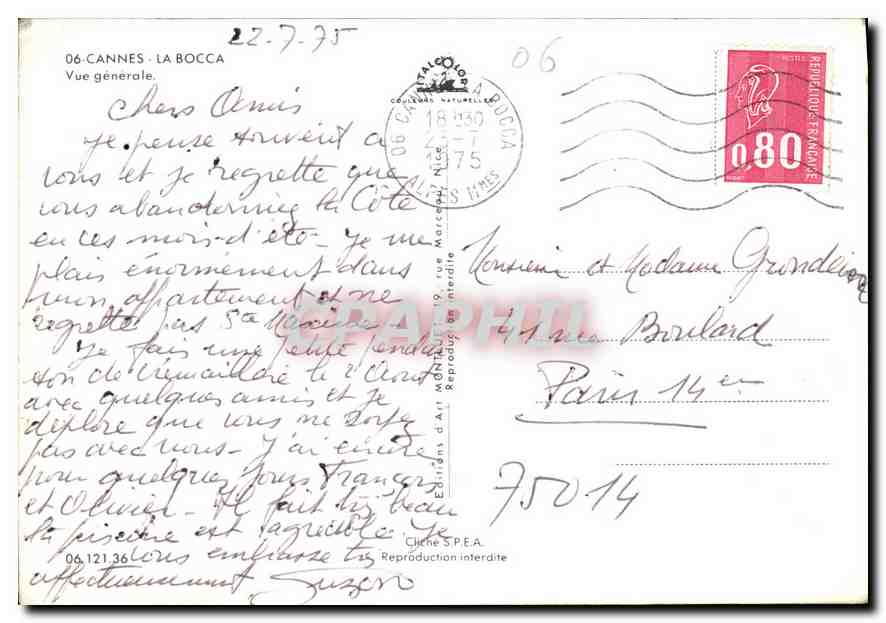 22.7.75
06
06-CANNES - LA BOCCA
Vue générale.
ITALCOLOR
COULEURS NATURELLES
06 CANNES LA BOCCA
18 H30
22-7
1975
ALPES MMES
POSTES
REPUBLIQUE FRANÇAISE
0,80
Chers Amis
Je pense souvent à
vous et je regrette que
vous abandonniez la Côte
en ces mois d'été - Je me
plais énormément dans
mon appartement et ne
regrette pas Ste Maxime -
Je fais une petite
de le 2 Août
avec quelques amis et je
déplore que vous ne soyez
pas avec nous - J'ai encore
pour quelques jours François
et Olivier - Il fait très beau
la piscine est agréable. Je
vous embrasse très
affectueusement
Editions d'Art MONTLUET, 19, rue Marceau, Nice
Reproduction interdite
CPAPHIL
Monsieur et Madame
41 rue Boulard
Paris 14em
75014
Cliché S.P.E.A.
06.121.36
Reproduction interdite